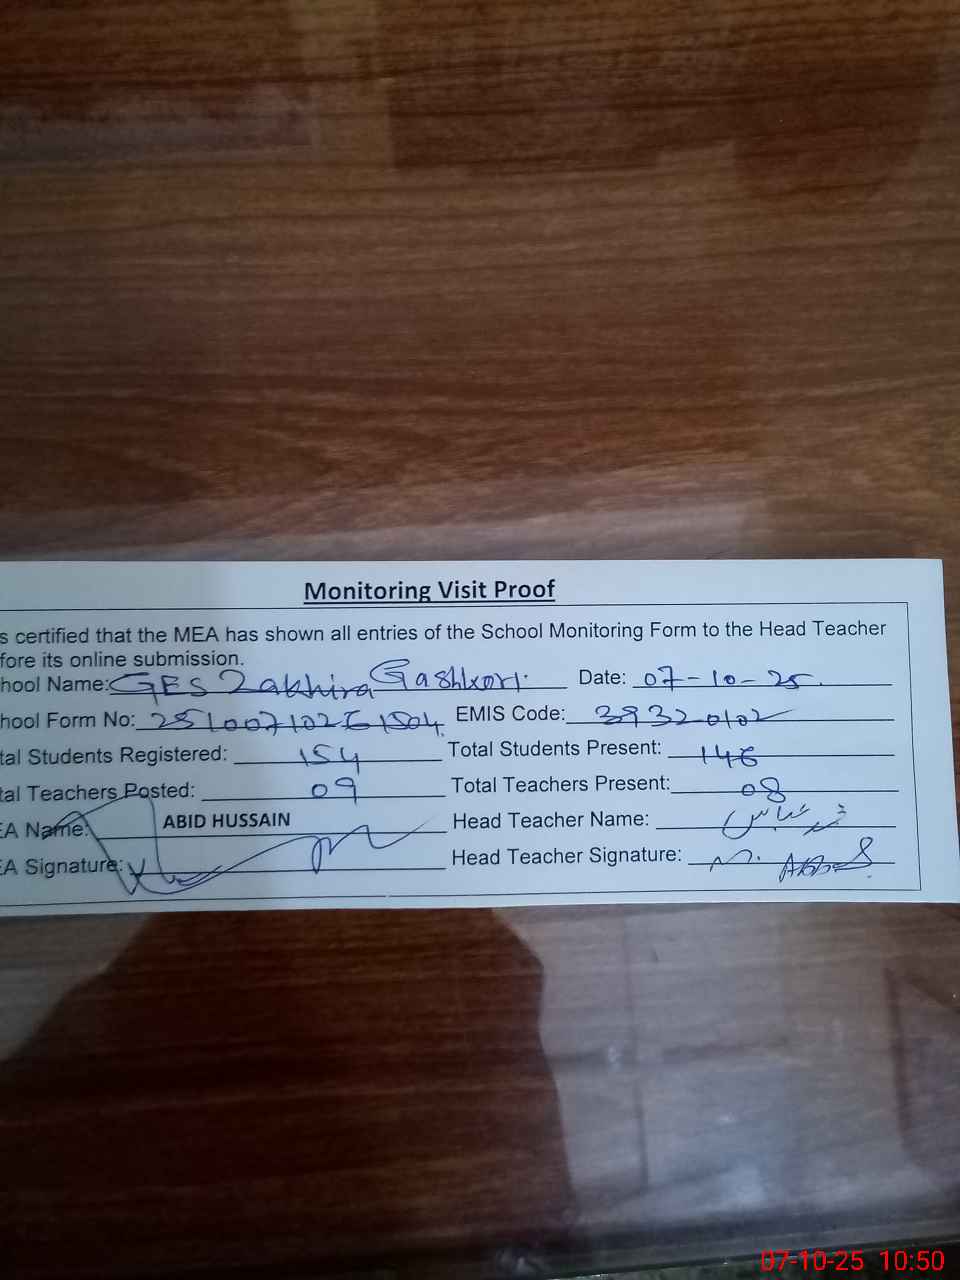 Monitoring Visit Proof
s certified that the MEA has shown all entries of the School Monitoring Form to the Head Teacher
fore its online submission.
hool Name: GES Zakhira Gashkori Date: 07-10-25
hool Form No: EMIS Code: 39320102
tal Students Registered: 154 Total Students Present: 146
tal Teachers Posted: 09 Total Teachers Present: 08
EA Name: ABID HUSSAIN Head Teacher Name: عباس
EA Signature: Head Teacher Signature: M. Abbas
07-10-25 10:50